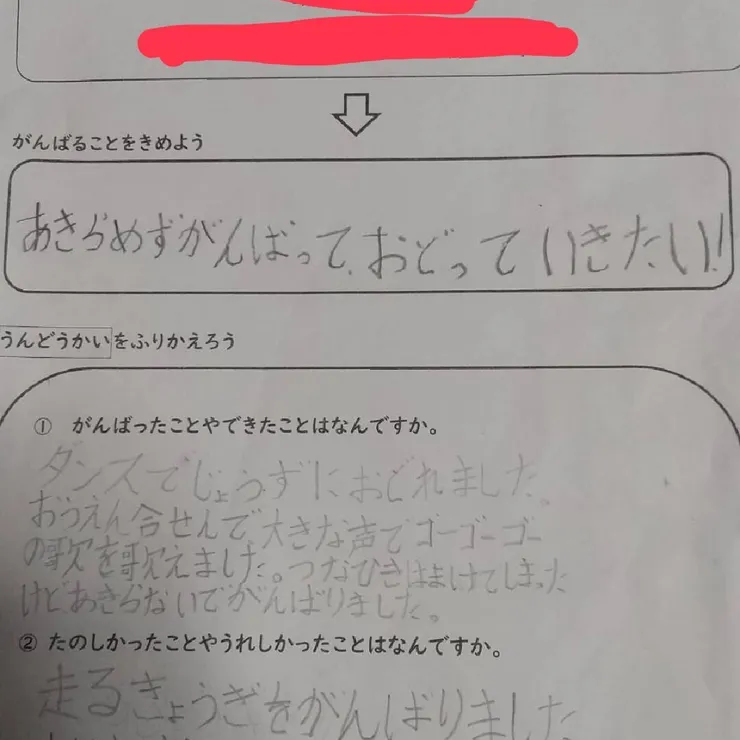 がんばることをきめよう
あきらめずがんばって、おどっていきたい!!
うんどうかいをふりかえろう
① がんばったことやできたことはなんですか。
ダンスでじょうずにおどれました。
おうえん合せんで大きな声でゴーゴーゴー
の歌を歌えました。つなひきはまけてしまった
けどあきらないでがんばりました。
② たのしかったことやうれしかったことはなんですか。
走るきょうぎをがんばりました